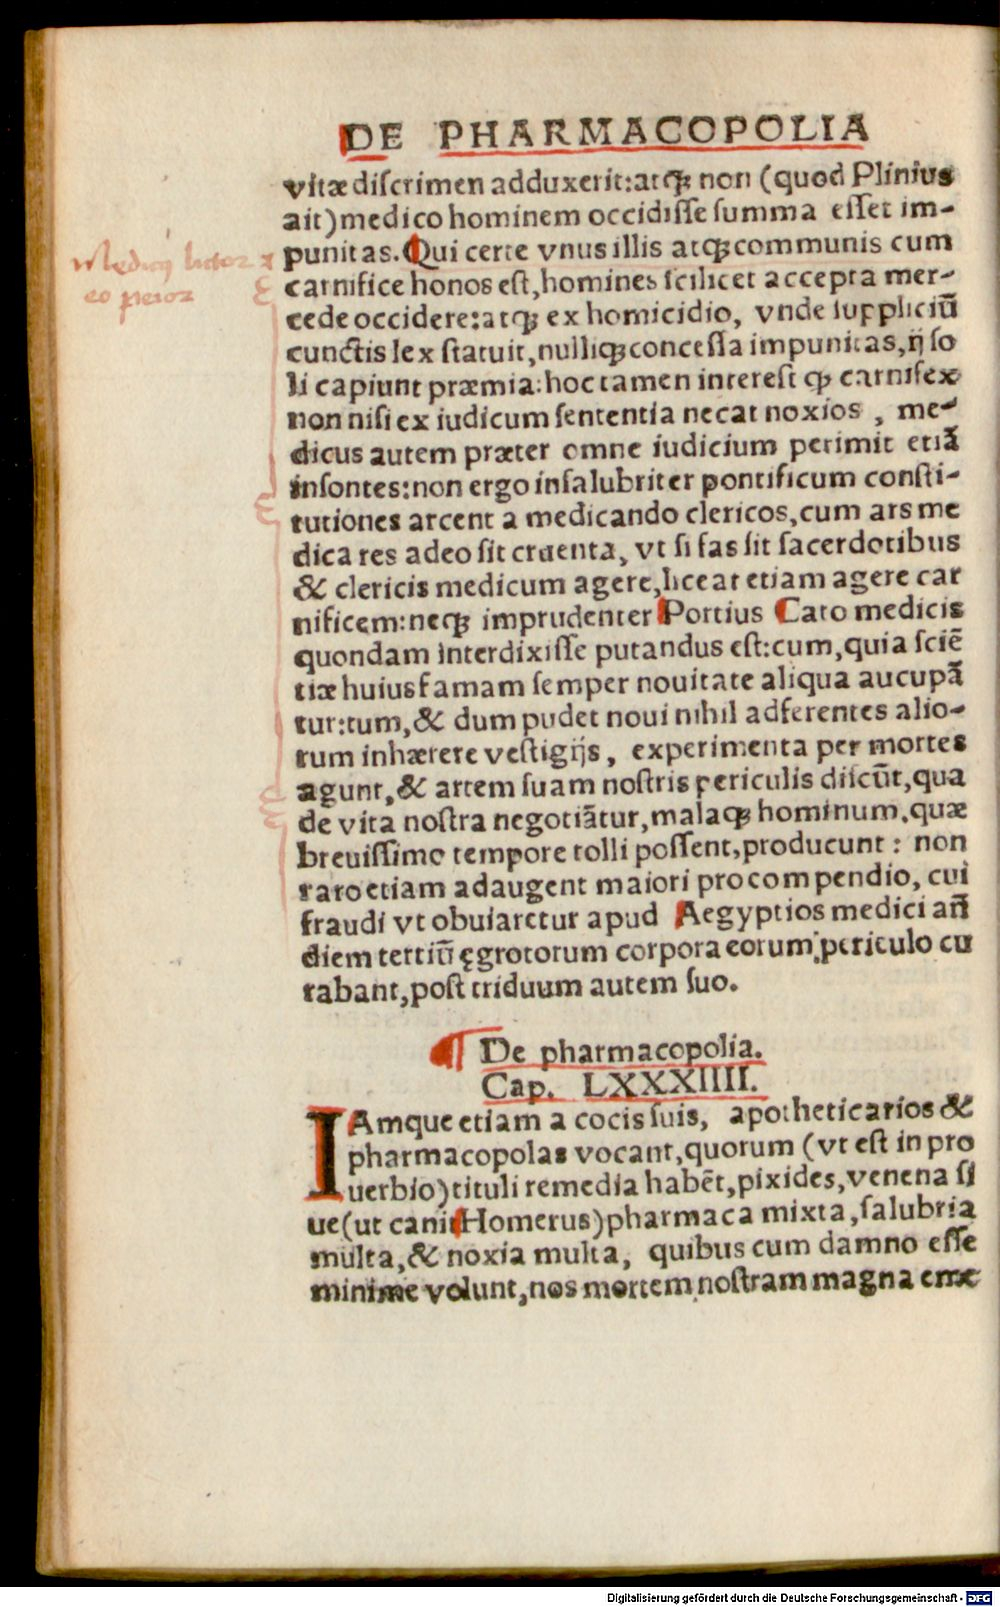 DE PHARMACOPOLIA
vitæ diſcrimen adduxerit: atqꝫ non (quod Plinius
ait) medico hominem occidiſſe ſumma eſſet im-
punitas. Qui certe vnus illis atqꝫ communis cum
carnifice honos eſt, homines ſcilicet accepta mer-
cede occidere: atqꝫ ex homicidio, vnde ſuppliciū
cunctis lex ſtatuit, nulliqꝫ conceſſa impunitas, ij ſo
li capiunt præmia: hoc tamen intereſt ꝙ carnifex
non niſi ex iudicum ſententia necat noxios, me-
dicus autem præter omne iudicium perimit etiã
inſontes: non ergo inſalubriter pontificum conſti-
tutiones arcent a medicando clericos, cum ars me
dica res adeo ſit cruenta, vt ſi fas ſit ſacerdotibus
& clericis medicum agere, liceat etiam agere car
nificem: neqꝫ imprudenter Portius Cato medicis
quondam interdixiſſe putandus eſt: cum, quia ſciẽ
tiæ huius famam ſemper nouitate aliqua aucupã
tur: tum, & dum pudet noui nihil adferentes alio-
rum inhærere veſtigijs, experimenta per mortes
agunt, & artem ſuam noſtris periculis diſcũt, qua
de vita noſtra negotiãtur, malaqꝫ hominum, quæ
breuiſſimo tempore tolli poſſent, producunt: non
raro etiam adaugent maiori pro compendio, cui
fraudi vt obuiaretur apud Aegyptios medici añ
diem tertiū ęgrotorum corpora eorum periculo cu
rabant, poſt triduum autem ſuo.
Medicꝯ lictor
eo peior
¶ De pharmacopolia.
Cap. LXXXIIII.
IAmque etiam a cocis ſuis, apotheticarios &
pharmacopolas vocant, quorum (vt eſt in pro
uerbio) tituli remedia habẽt, pixides, venena ſi
ue (ut canit Homerus) pharmaca mixta, ſalubria
multa, & noxia multa, quibus cum damno eſſe
minime volunt, nos mortem noſtram magna eme
Digitalisierung gefördert durch die Deutsche Forschungsgemeinschaft - DFG